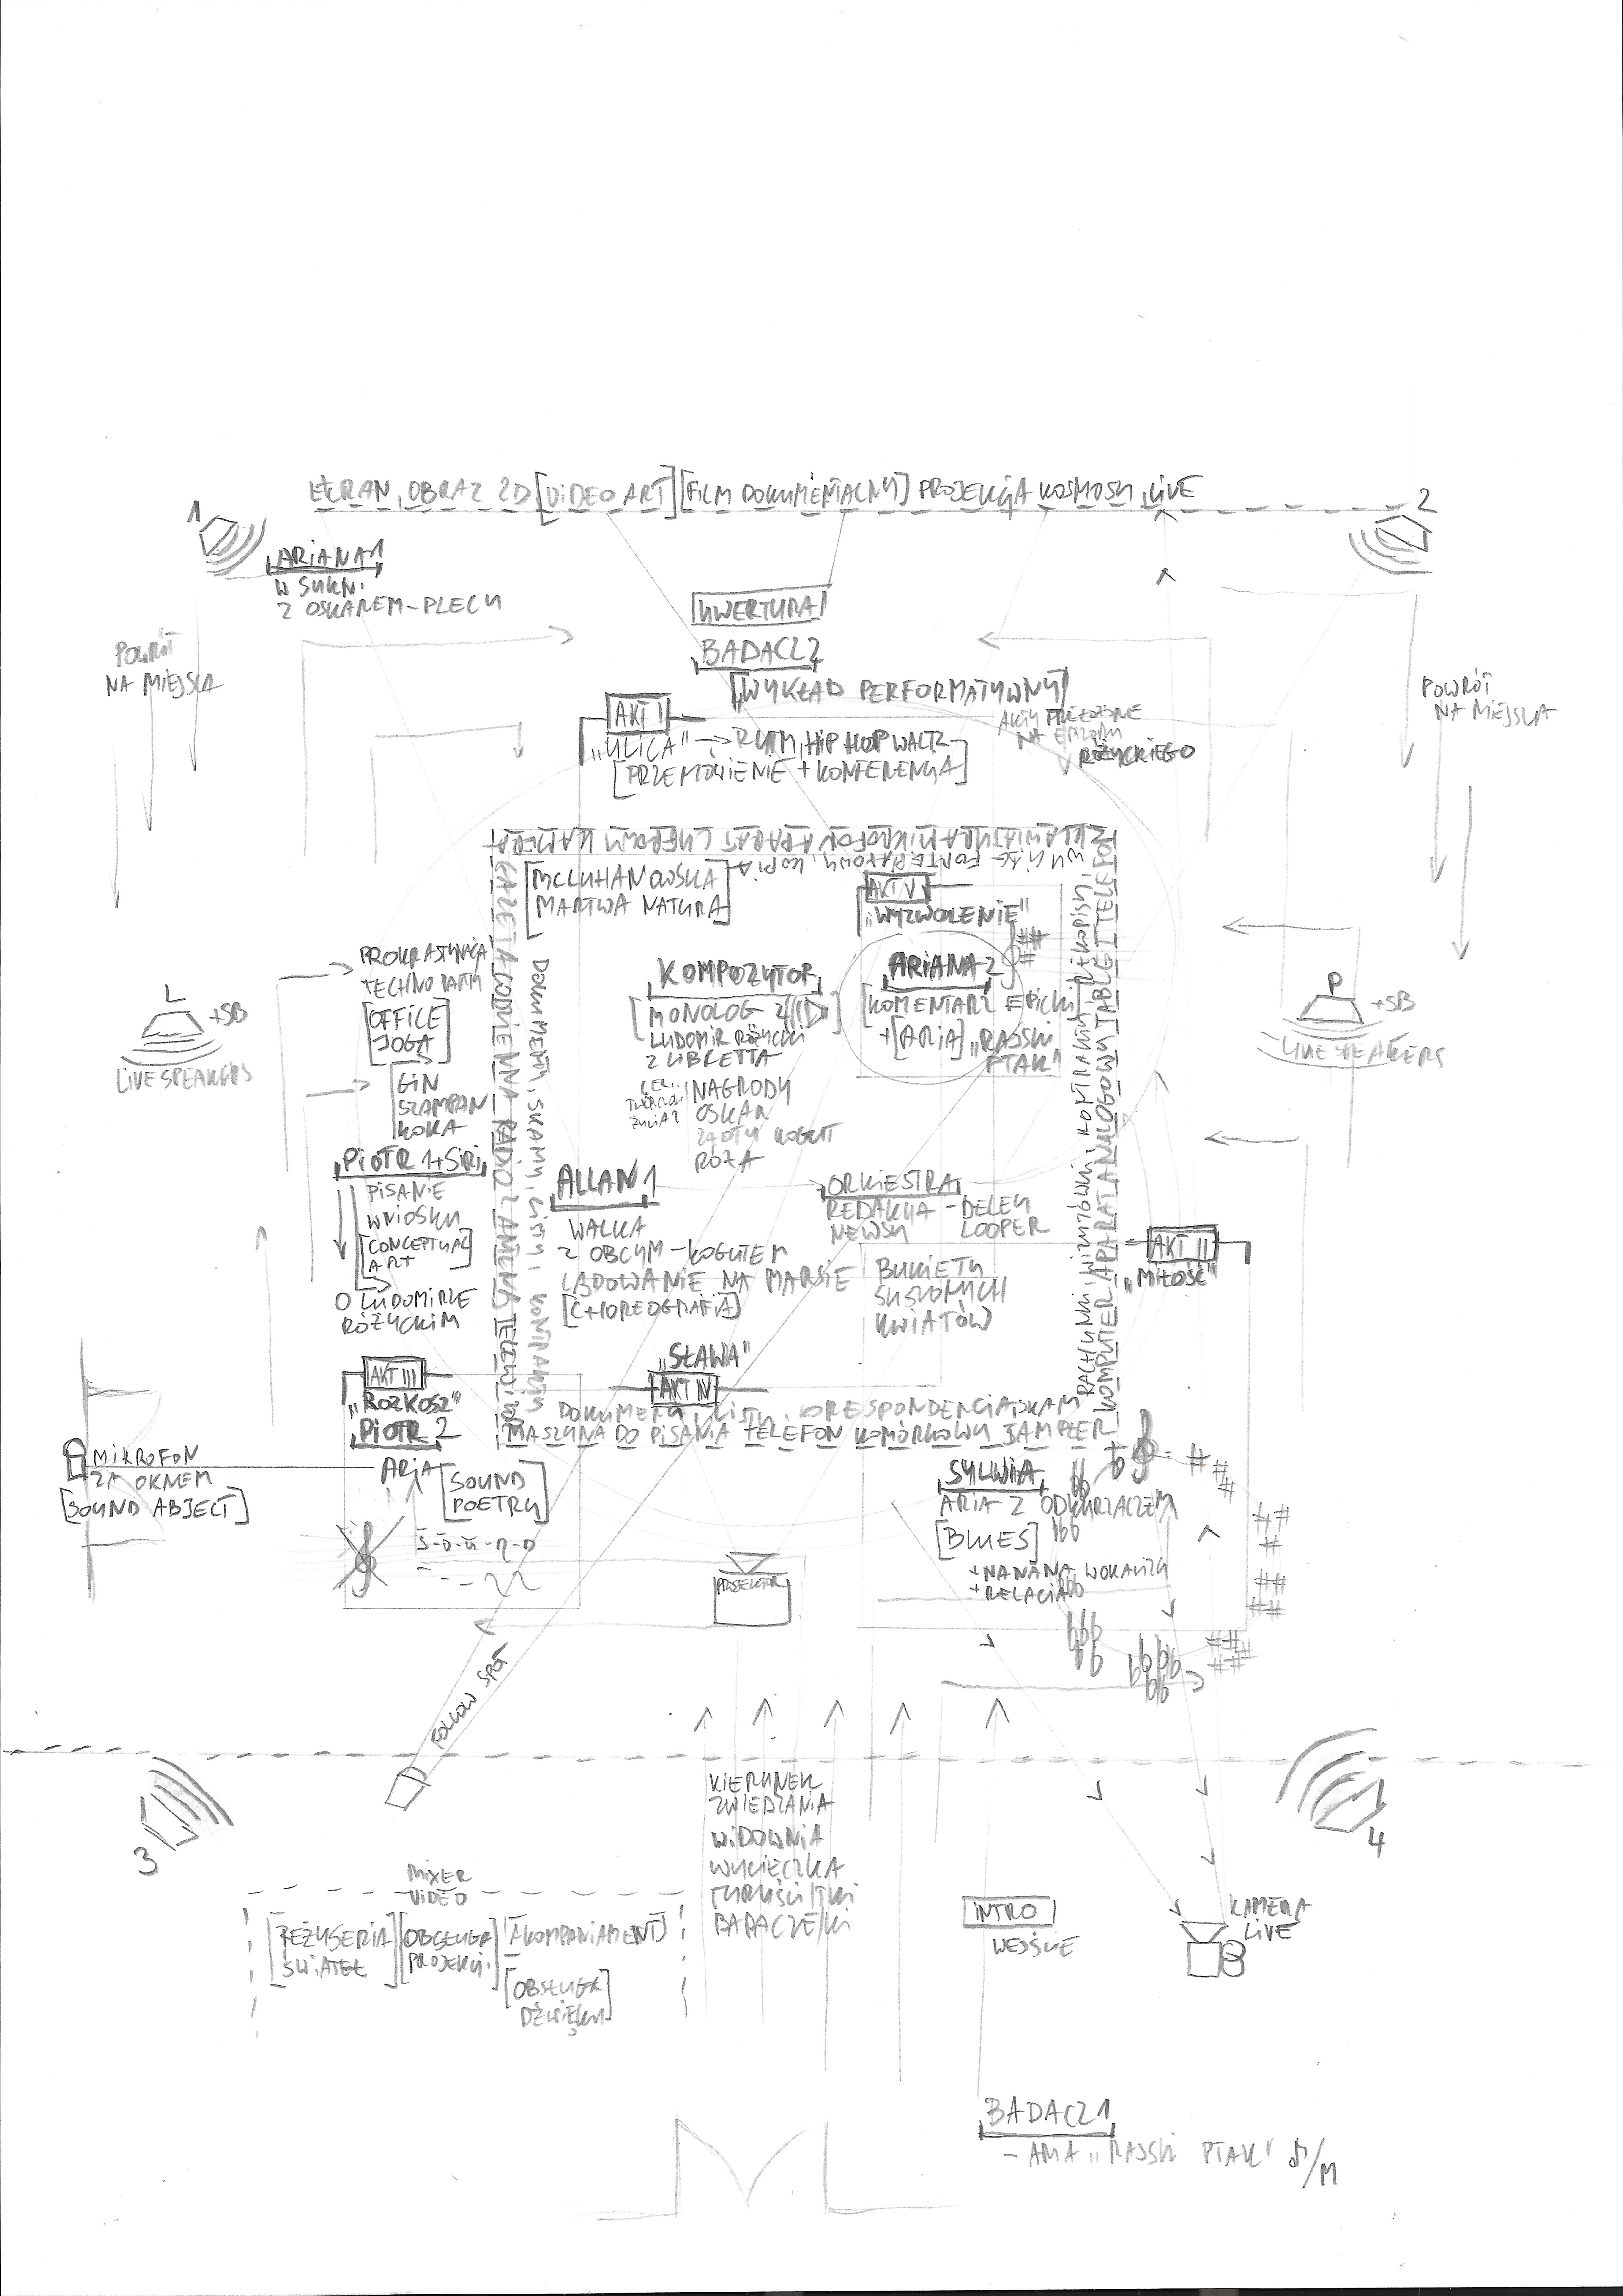 EKRAN, OBRAZ 2D [VIDEO ART] [FILM DOKUMENTALNY] PROJEKCJA KOSMOSU, LIVE
1
2
ARIANA 1
W SUKNI
Z OSKAREM-PLECY
UWERTURA
BADACZ 2
[WYKŁAD PERFORMATYWNY]
POWRÓT
NA MIEJSCA
POWRÓT
NA MIEJSCA
AKT I
AKTY
NA
RÓŻYCKIEGO
„ULICA” → RYTM, HIP HOP WALTZ
[PRZEMÓWIENIE + KONFERENCJA]
MIKROFON APARAT CYFROWY KAMERA
GAZETA CODZIENNA RADIO Z ANTENĄ
DOKUMENTY, SKAMY, LISTY, KONTRAKTY
RACHUNKI, WIZYTÓWKI, KONTRAKTY, RĘKOPISY,
KOMPUTER, APARAT ANALOGOWY, TABLET, TELEFON
[MCLUHANOWSKA
MARTWA NATURA]
AKT V
„WYZWOLENIE”
ARIANA 2
[KOMENTARZ EPICKI]
+[ARIA] „RAJSKI
PTAK”
KOMPOZYTOR
[MONOLOG
LUDOMIR RÓŻYCKI
Z LIBRETTA
NAGRODY
OSKAR
ZŁOTY KOGUT
RÓŻA
PROKRASTYNACJA
TECHNO PARTY
[OFFICE
JOGA]
GIN
SZAMPAN
KOKA
L
+SB
LIVE SPEAKERS
P
+SB
LIVE SPEAKERS
PIOTR 1+SIRI
PISANIE
WNIOSKU
[CONCEPTUAL
ART]
O LUDOMIRZE
RÓŻYCKIM
ALLAN 1
WALKA
Z OBCYM-KOGUTEM
LĄDOWANIE NA MARSIE
[CHOREOGRAFIA]
ORKIESTRA
REDAKCJA - DELEY
NEWSY LOOPER
BUKIETY
SUSZONYCH
KWIATÓW
AKT II
„MIŁOŚĆ”
AKT III
„ROZKOSZ”
PIOTR 2
ARIA
[SOUND
POETRY]
S-O-U-N-D
„SŁAWA”
AKT IV
DOKUMENTY, LISTY, KORESPONDENCJA, SKAM
MASZYNA DO PISANIA TELEFON KOMÓRKOWY SAMPLER
MIKROFON
ZA OKNEM
[SOUND ABJECT]
SYLWIA
ARIA Z ODKURZACZEM
[BLUES]
+NANANA, WOKALIZY
+RELACJA
PROJEKTOR
FOLLOW SPOT
3
4
KIERUNEK
ZWIEDZANIA
WIDOWNIA
WYCIECZKA
TURYŚCI/TKI
BADACZE/KI
MIXER
VIDEO
[REŻYSERIA
ŚWIATEŁ]
[OBSŁUGA
PROJEKCJI]
[AKOMPANIAMENT]
[OBSŁUGA
DŹWIĘKU]
INTRO
WEJŚCIE
KAMERA
LIVE
BADACZ 1
- ARIA „RAJSKI PTAK”